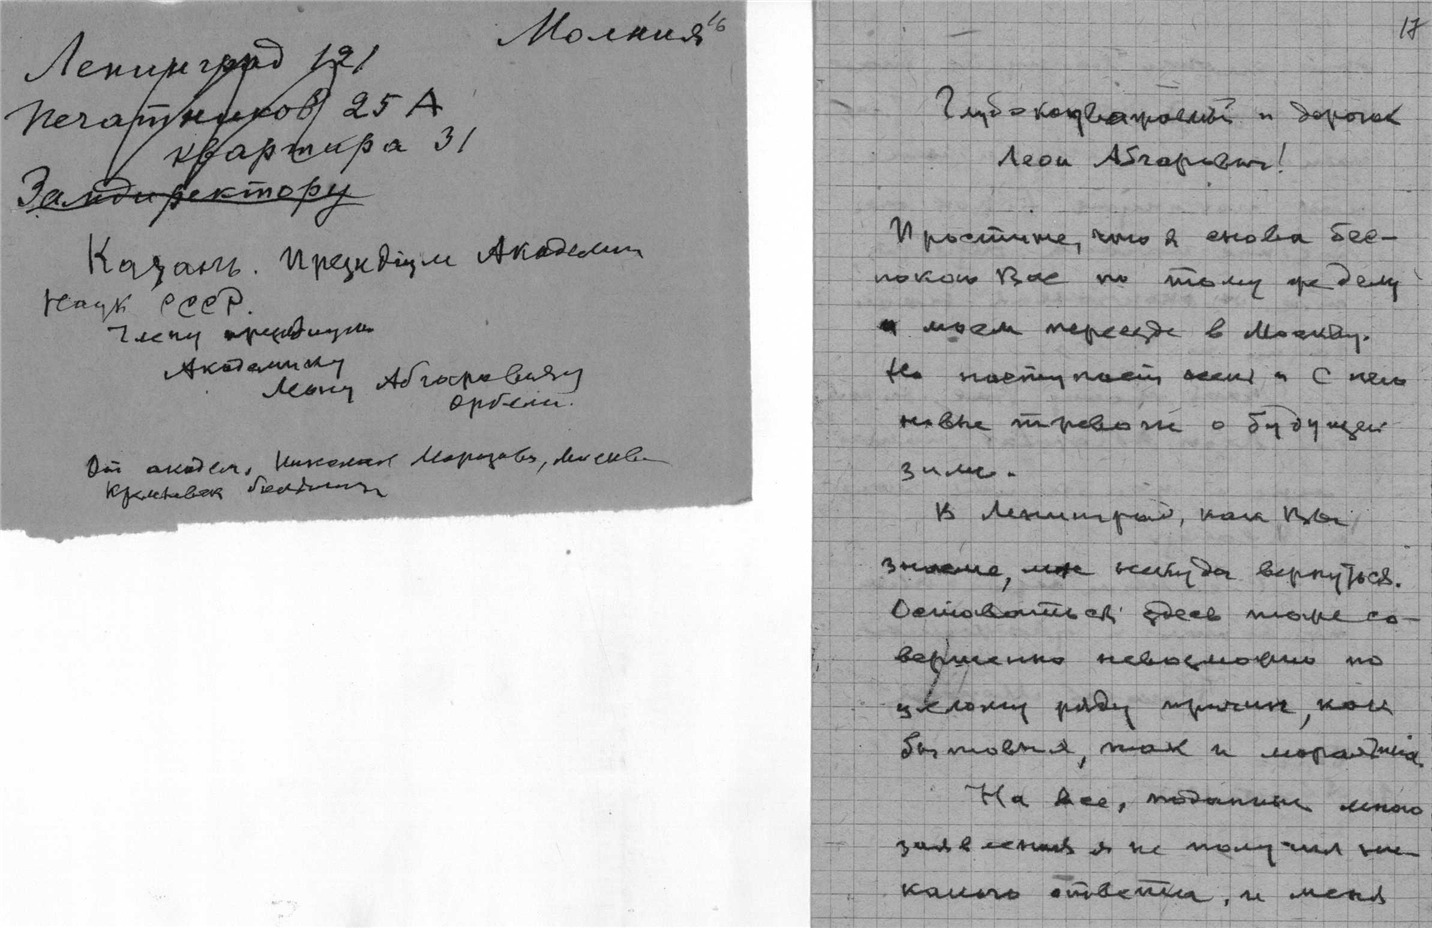 Молния 16
Ленинград 121
Печатников 25 А
квартира 31
Замдиректору
Казань. Президиум Академии
Наук СССР.
Члену президиума
Академику
Леону Абгаровичу
Орбели.
От академ. Николая Морозова, Москва
Кремлевск больницы
17
Глубокоуважаемый и дорогой
Леон Абгарович!
Простите, что я снова бес-
покою Вас по тому же делу
о моем переезде в Москву.
Но наступает осень и с нею
новые тревоги о будущей
зиме.
В Ленинград, как Вы
знаете, мне некуда вернуться.
Оставаться здесь тоже со-
вершенно невозможно по
целому ряду причин, как
бытовых, так и моральных.
На все, поданные мною
заявления я не получил ни-
какого ответа, и меня